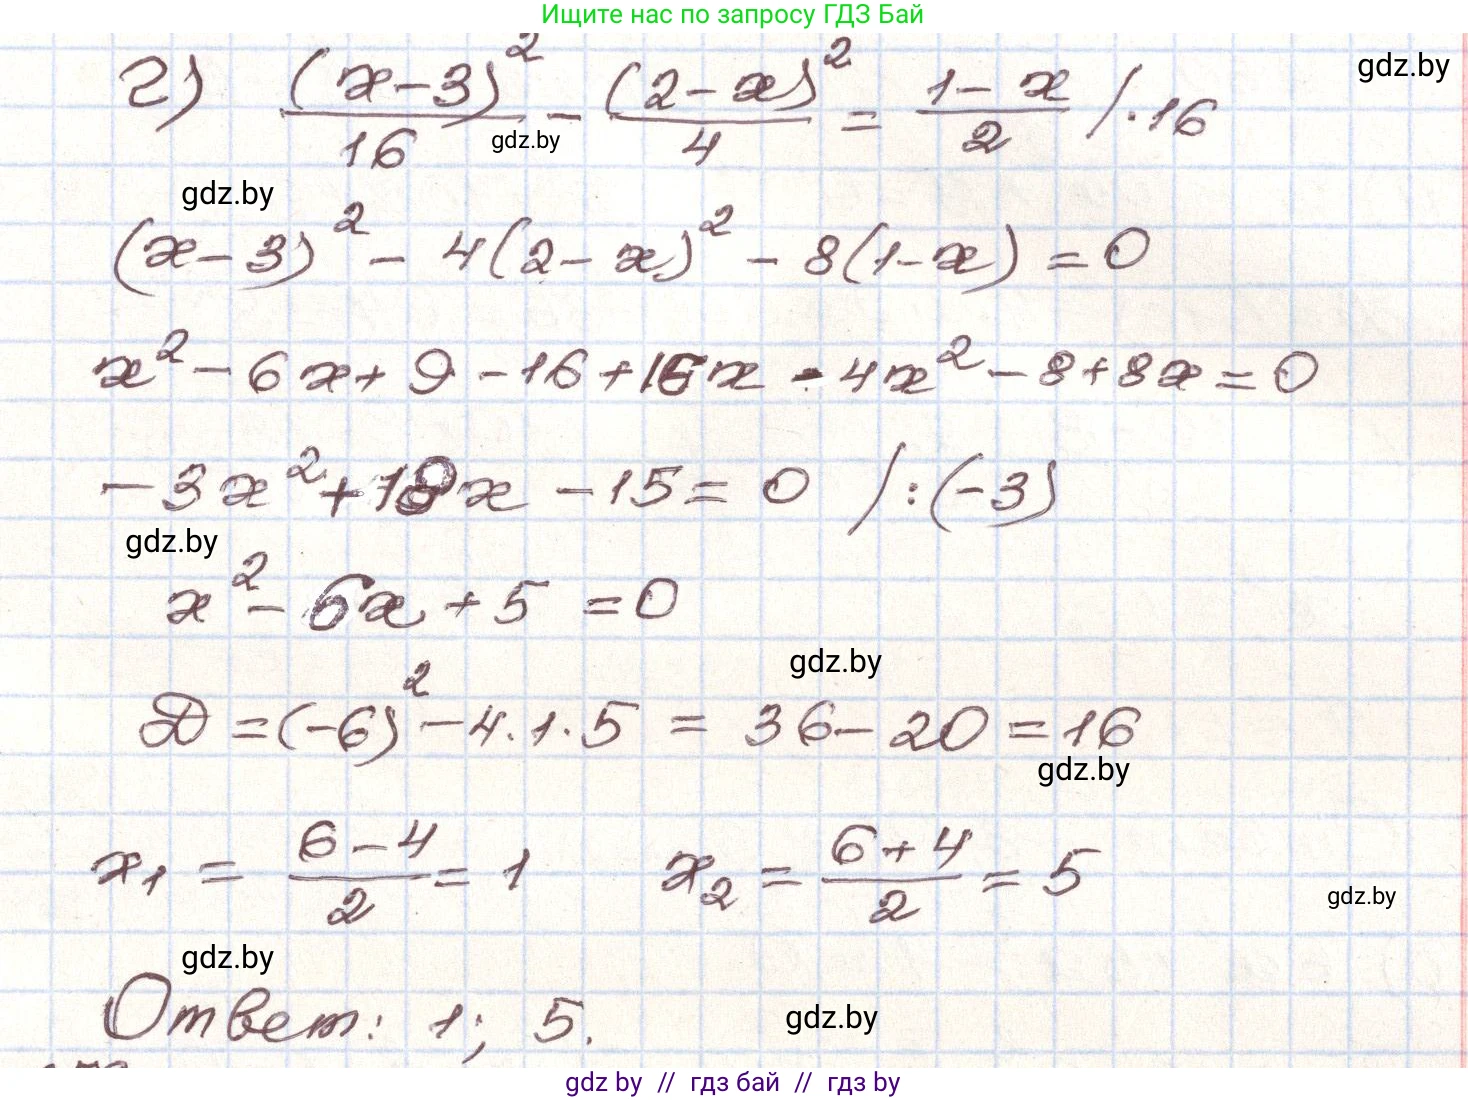 Ищите нас по запросу ГДЗ Бай
gdz.by
г) (x-3)²/16 - (2-x)²/4 = (1-x)/2 /·16
gdz.by
gdz.by
(x-3)² - 4(2-x)² - 8(1-x) = 0
x² - 6x + 9 - 16 + 16x - 4x² - 8 + 8x = 0
-3x² + 18x - 15 = 0 /:(-3)
gdz.by
x² - 6x + 5 = 0
gdz.by
D = (-6)² - 4·1·5 = 36 - 20 = 16
gdz.by
x₁ = (6-4)/2 = 1 x₂ = (6+4)/2 = 5
gdz.by
gdz.by
Ответ: 1; 5.
gdz.by
gdz by // гдз бай // гдз by